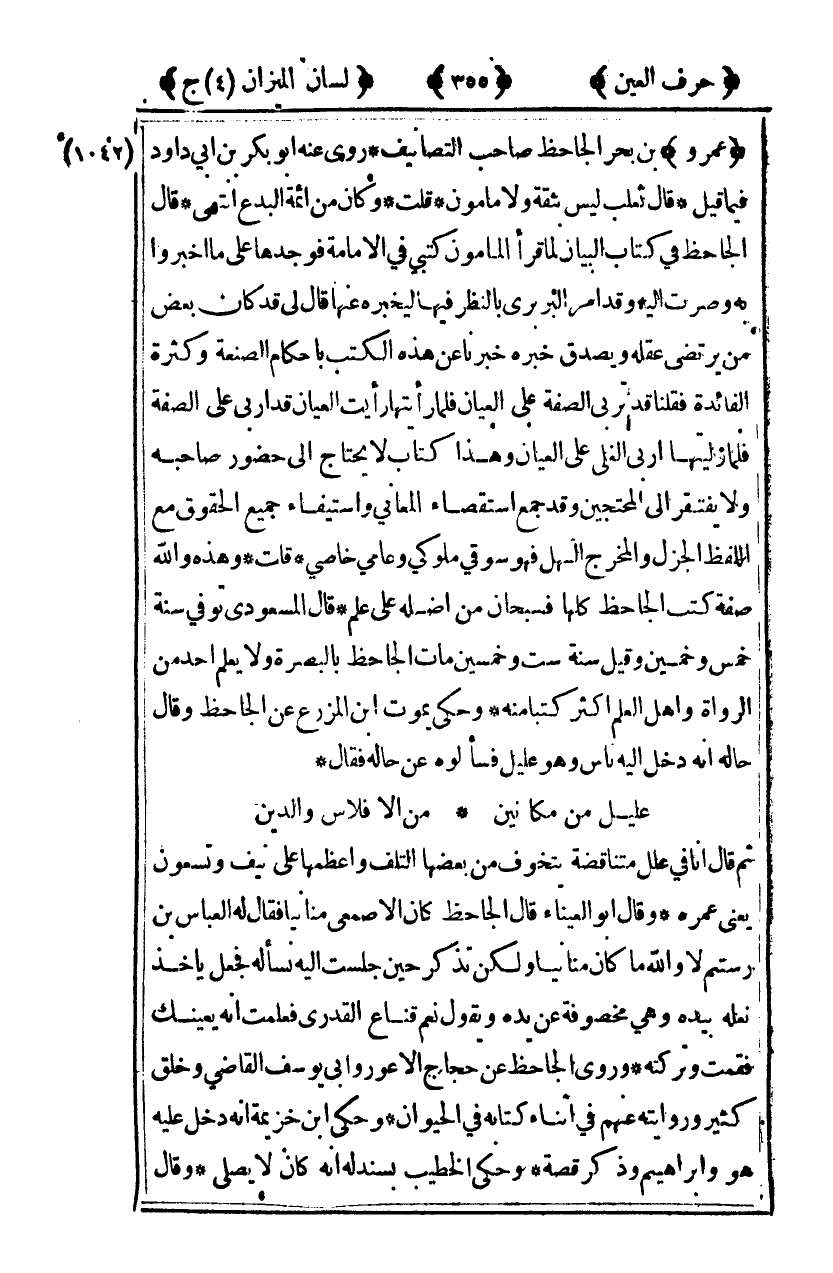 ﴿ حرف العين ﴾ ﴿ ٣٥٥ ﴾ ﴿ لسان الميزان (٤) ج ﴾
﴿ عمرو ﴾ بن بحر الجاحظ صاحب التصانيف * روى عنه ابو بكر بن ابي داود (١٠٤٢)
فيما قيل * قال ثعلب ليس بثقة ولا مامون * قلت * وكان من ائمة البدع انتهى * قال
الجاحظ في كتاب البيان لما قرأ المامون كتبي في الامامة فوجدها على ما اخبروا
به وصرت اليه وقد امر البربرى بالنظر فيها ليخبره عنها قال لى قد كان بعض
من يرتضى عقله ويصدق خبره خبرنا عن هذه الكتب باحكام الصنعة وكثرة
الفائدة فقلنا قد تربى الصفة على العيان فلما رأيتها رأيت العيان قد اربى على الصفة
فلما فليتها اربى الفلى على العيان وهذا كتاب لا يحتاج الى حضور صاحبه
ولا يفتقر الى المحتجين وقد جمع استقصاء المعاني واستيفاء جميع الحقوق مع
اللفظ الجزل والمخرج السهل فهو سوقي ملوكي وعامي خاصي * قلت * وهذه والله
صفة كتب الجاحظ كلها فسبحان من اضله على علم * قال المسعودى توفي سنة
خمس وخمسين وقيل سنة ست وخمسين مات الجاحظ بالبصرة ولا يعلم احد من
الرواة واهل العلم اكثر كتبا منه * وحكى يموت ابن المزرع عن الجاحظ وقال
حاله انه دخل اليه ناس وهو عليل فسألوه عن حاله فقال *
عليل من مكانين * من الافلاس والدين
ثم قال انا في علل متناقضة يتخوف من بعضها التلف واعظمها على نيف وتسعون
يعنى عمره * وقال ابو العيناء قال الجاحظ كان الاصمعى منانيا فقال له العباس بن
رستم لا والله ما كان منانيا ولكن تذكر حين جلست اليه نسأله فجعل ياخذ
نعله بيده وهي مخصوفة عن يده ويقول نعم قناع القدرى فعلمت أنه يعينك
فقمت وتركته * وروى الجاحظ عن حجاج الاعور وابي يوسف القاضي وخلق
كثير وروايته عنهم في أثناء كتابه في الحيوان * وحكى ابن خزيمة انه دخل عليه
هو وابراهيم وذكر قصة * وحكى الخطيب بسند له أنه كان لا يصلى * وقال